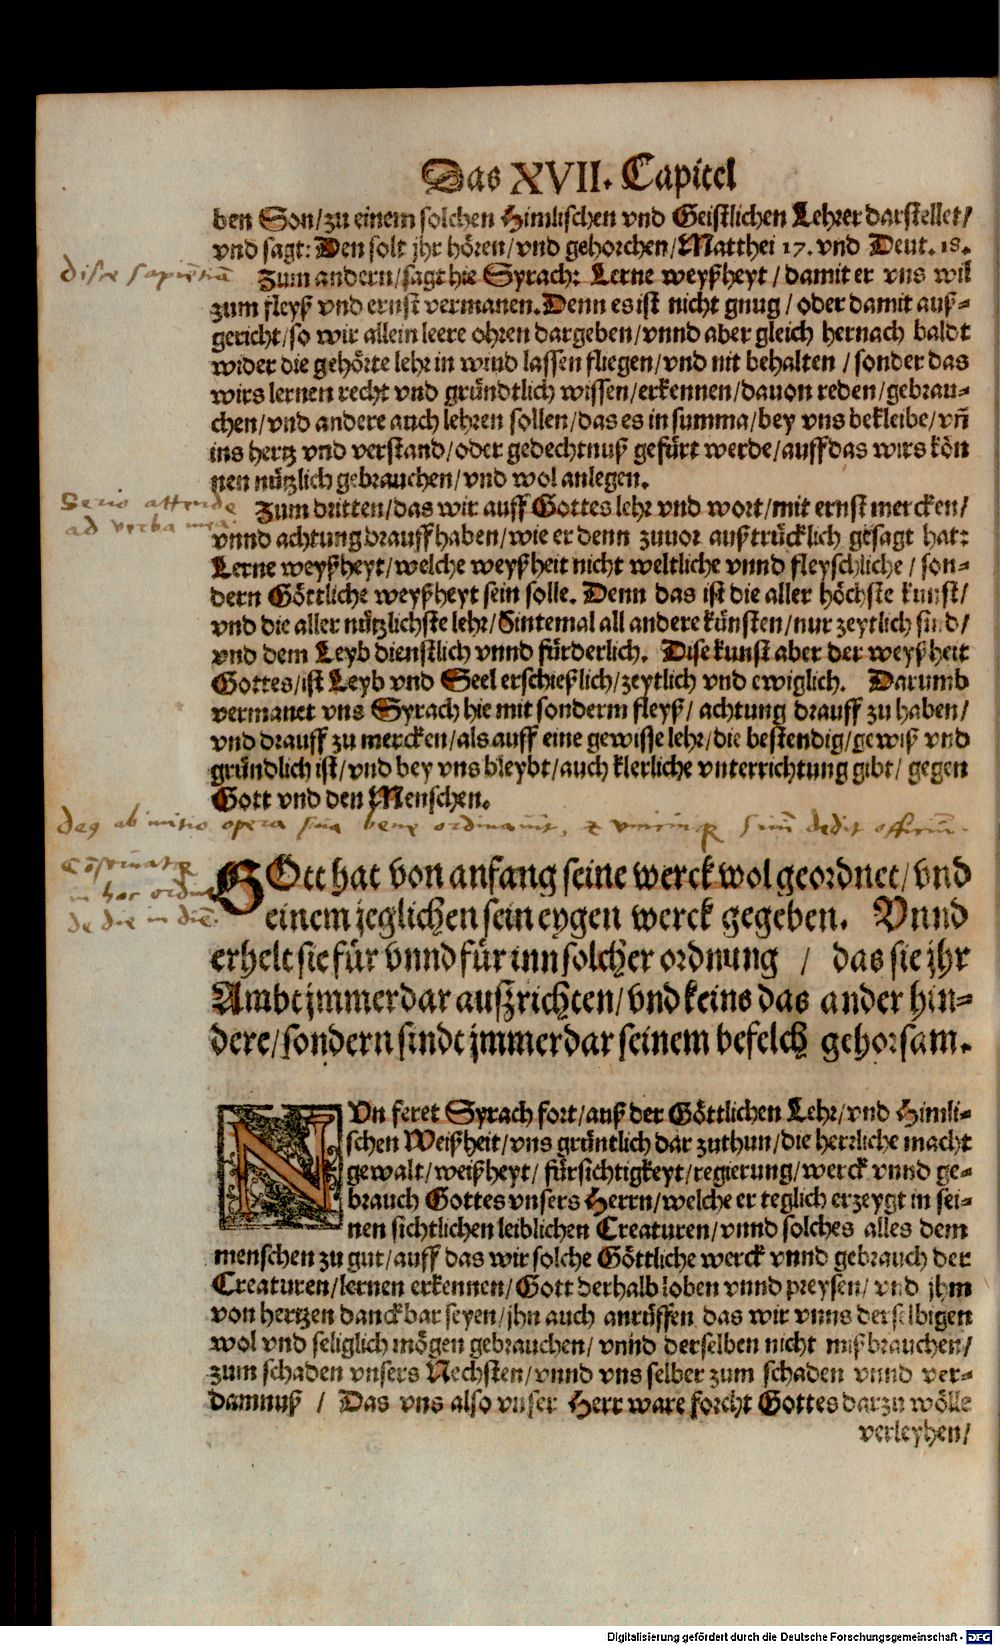 Das XVII. Capitel
ben Son/zu einem solchen Himlischen vnd Geistlichen Lehrer darstellet/
vnd sagt: Den solt jhr hören/vnd gehorchen/Matthei 17. vnd Deut. 18.
disce sapiētiā
Zum andern/sagt hie Syrach: Lerne weyßheyt/damit er vns wil
zum fleyß vnd ernst vermanen. Denn es ist nicht gnug/oder damit auß-
gericht/so wir allein leere ohren dargeben/vnnd aber gleich hernach baldt
wider die gehörte lehr in wind lassen fliegen/vnd nit behalten/sonder das
wirs lernen recht vnd gründtlich wissen/erkennen/dauon reden/gebrau-
chen/vnd andere auch lehren sollen/das es in summa/bey vns bekleibe/vñ
ins hertz vnd verstand/oder gedechtnuß gefürt werde/auffdas wirs kön
nen nützlich gebrauchen/vnd wol anlegen.
Serio attende
ad verba mea.
Zum dritten/das wir auff Gottes lehr vnd wort/mit ernst mercken/
vnnd achtung drauff haben/wie er denn zuuor außtrücklich gesagt hat:
Lerne weyßheyt/welche weyßheit nicht weltliche vnnd fleyschliche/son-
dern Göttliche weyßheyt sein solle. Denn das ist die aller höchste kunst/
vnd die aller nützlichste lehr/Sintemal all andere künsten/nur zeytlich sind/
vnd dem Leyb dienstlich vnnd fürderlich. Dise kunst aber der weyßheit
Gottes/ist Leyb vnd Seel erschießlich/zeytlich vnd ewiglich. Darumb
vermanet vns Syrach hie mit sonderm fleyß/achtung drauff zu haben/
vnd drauff zu mercken/als auff eine gewisse lehr/die bestendig/gewiß vnd
gründlich ist/vnd bey vns bleybt/auch klerliche vnterrichtung gibt/gegen
Gott vnd den Menschen.
ab initio opera sua bene ordinauit, dedit officiū.
in hoc ordine
de die in diē.
GOtt hat von anfang seine werck wol geordnet/vnd
einem jeglichen sein eygen werck gegeben. Vnnd
erhelt sie für vnnd für inn solcher ordnung / das sie jhr
Ambt jmmerdar außrichten/vnd keins das ander hin-
dere/sondern sindt jmmerdar seinem befelch gehorsam.
NVn feret Syrach fort/auß der Göttlichen Lehr/vnd Himli-
schen Weißheit/vns gründtlich dar zuthun/die herrliche macht
gewalt/weißheyt/fürsichtigkeyt/regierung/werck vnnd ge-
brauch Gottes vnsers Herrn/welche er teglich erzeygt in sei-
nen sichtlichen leiblichen Creaturen/vnnd solches alles dem
menschen zu gut/auff das wir solche Göttliche werck vnnd gebrauch der
Creaturen/lernen erkennen/Gott derhalb loben vnnd preysen/vnd jhm
von hertzen danckbar seyen/jhn auch anrüffen das wir vnns derselbigen
wol vnd seliglich mögen gebrauchen/vnnd derselben nicht mißbrauchen/
zum schaden vnsers Nechsten/vnnd vns selber zum schaden vnnd ver-
damnuß / Das vns also vnser Herr ware forcht Gottes darzu wölle
verleyhen/
Digitalisierung gefördert durch die Deutsche Forschungsgemeinschaft - DFG